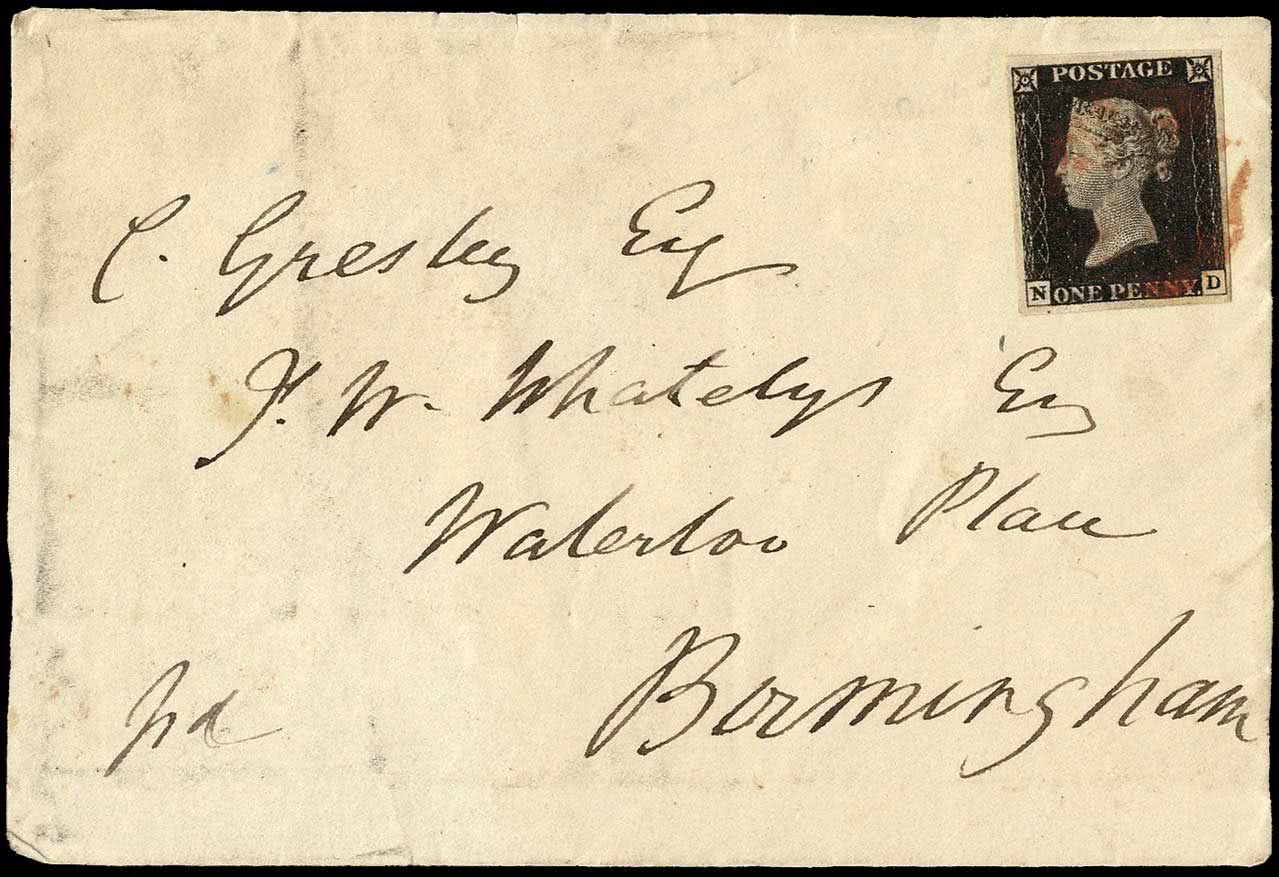 POSTAGE
N ONE PENNY. D
C. Gresley Esq
J. W. Whatelys Esq
Waterloo Place
Birmingham
pd